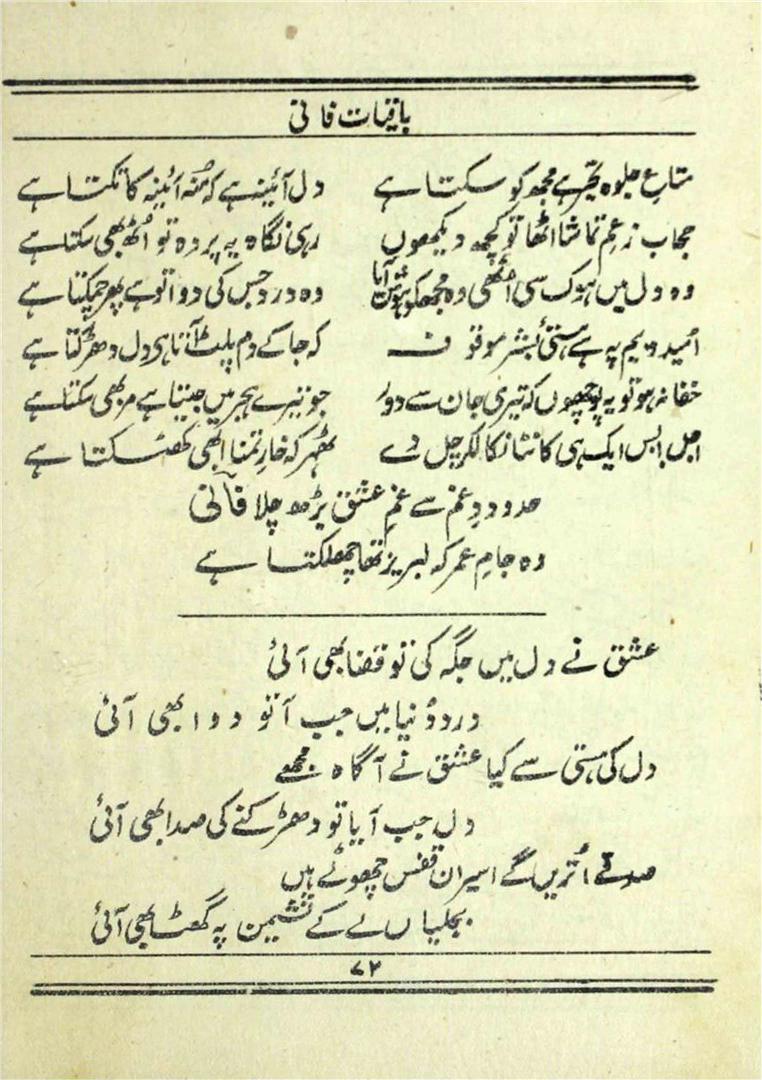 باقیات فانی
متاعِ جلوہ تحیّر ہے مجھ کو سکتا ہے دل آئینہ ہے کہ مُنہ آئینہ کا تکتا ہے
حجاب زعمِ تماشا اٹھا تو کچھ دیکھوں رہی نگاہ یہ پردہ تو اُٹھ بھی سکتا ہے
وہ دل میں ہوک سی اُٹھی وہ مجھ کو ہوش آیا وہ درد جس کی دوا تو ہے پھر چمکتا ہے
اُمید و بیم پہ ہے ہستیٔ بشر موقوف کہ جا کے دم پلٹ آتا ہی دل دھڑکتا ہے
خفا نہ ہو تو یہ پوچھوں کہ تیری جان سے دور جو تیرے ہجر میں جیتا ہے مر بھی سکتا ہے
اجل بس ایک ہی کانٹا نکالکر چل دے ٹھہر کہ خارِ تمنا ابھی کھٹکتا ہے
حدودِ غم سے غمِ عشق بڑھ چلا فانی
وہ جامِ عمر کہ لبریز تھا چھلکتا ہے
عشق نے دل میں جگہ کی تو قضا بھی آئی
درد دُنیا میں جب آتو دوا بھی آئی
دل کی ہستی سے کیا عشق نے آگاہ مجھے
دل جب آیا تو دھڑکنے کی صدا بھی آئی
صدقے اُتریں گے اسیران قفس چھوٹے ہیں
بجلیاں لے کے نشیمن پہ گھٹا بھی آئی
۷۲